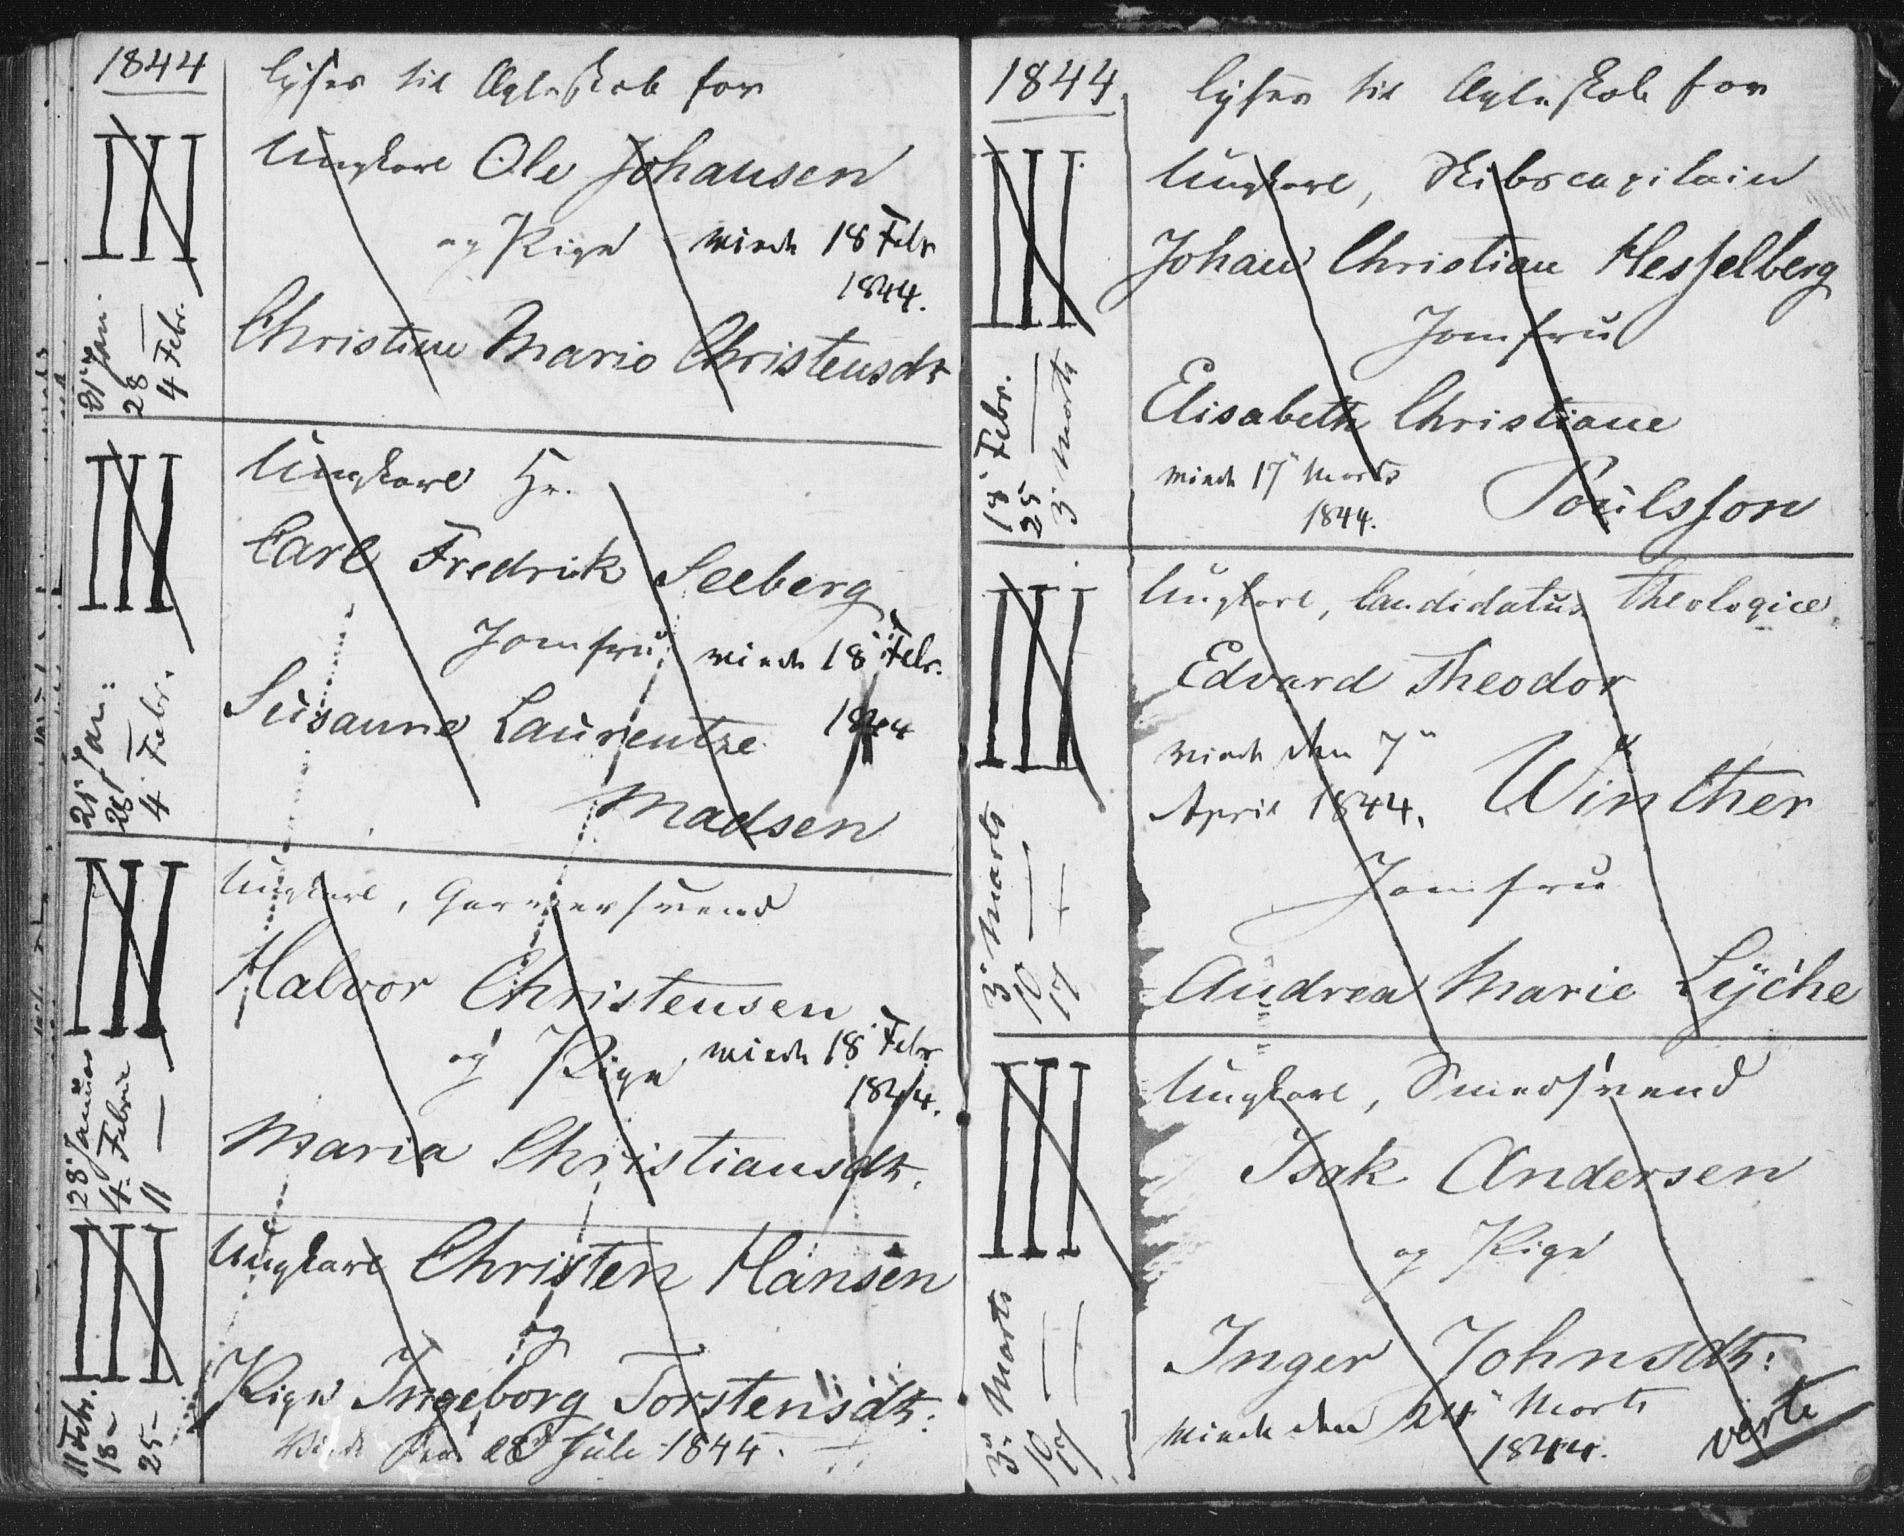 1844
lyses til Ægteskab for
III
21 Jan.
28 —
4 Febr.
Ungkarl Ole Johansen
og Pige viede 18 Febr
1844.
Christine Marie Christensdtr
III
21 Jan:
28 —
4 Febr.
Ungkarl Hr.
Carl Fredrik Seeberg
Jomfru viede 18 Febr.
1844
Susanne Laurentze
Madsen
III
28 Januar
4. Febrie
11 —
Ungkarl, Garversvend
Halvor Christensen
og Pige viede 18 Febr
1844.
Maria Christiansdtr.
III
11 Febr.
18 —
25 —
Ungkarl Christen Hansen
og
Pige Ingeborg Torstensdtr.
Viede den 28 Juli 1844.
1844
lyses til Ægteskab for
III
18 Febr.
25 —
3 Marts
Ungkarl, Skibscapitain
Johan Christian Hesselberg
Jomfru
Elisabeth Christiane
viede 17 Marts
1844.
Poulsson
III
3 Marts
10 —
17 —
Ungkarl, Candidatus Theologice
Edvard Theodor
viede den 7
April 1844. Winther
Jomfru
Andrea Marie Lyche
III
3 Marts
10 —
17 —
Ungkarl, Smedsvend
Isak Andersen
og Pige
Inger Johnsdtr:
viede den 24 Marts
1844.
verte